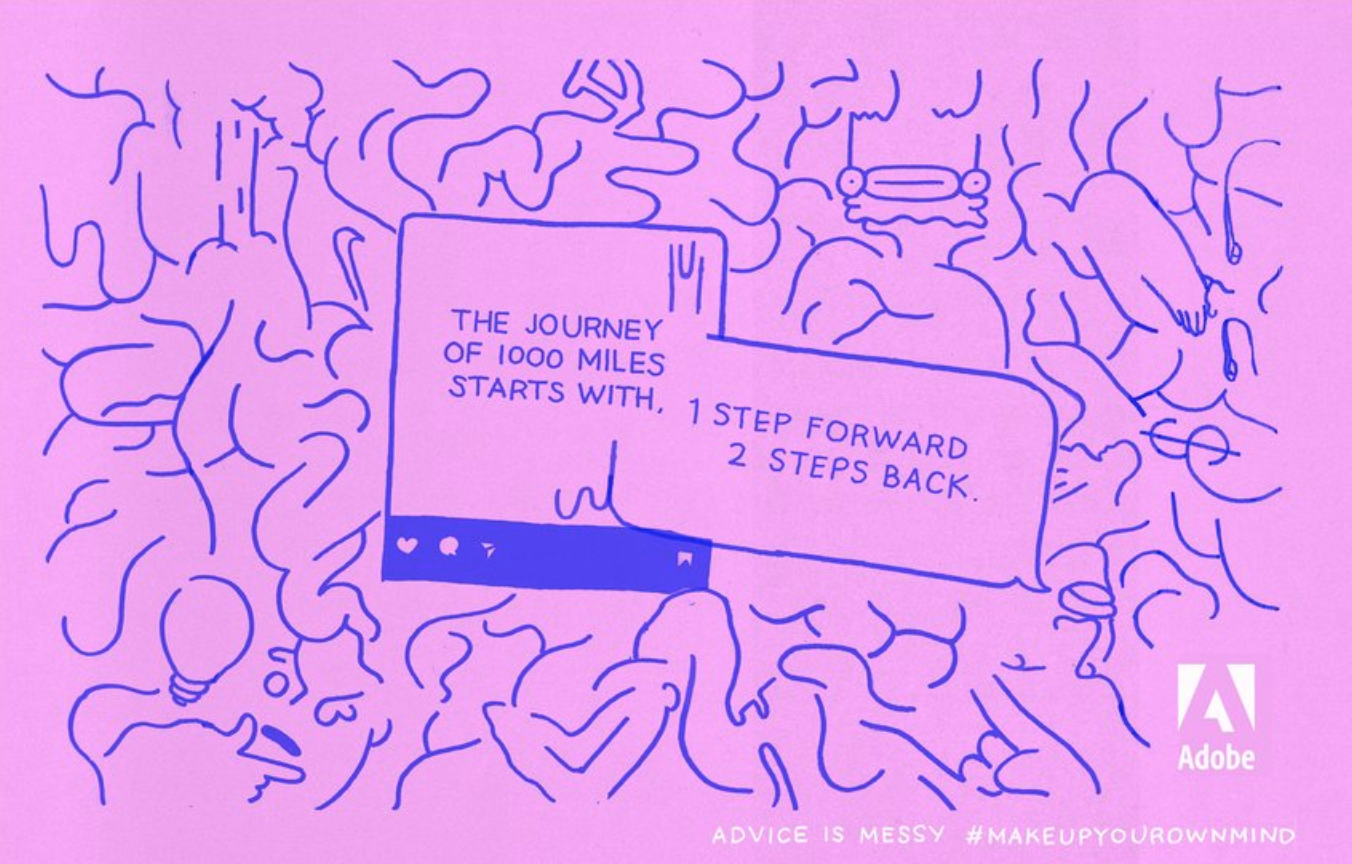 THE JOURNEY
OF 1000 MILES
STARTS WITH,
1 STEP FORWARD
2 STEPS BACK.
Adobe
ADVICE IS MESSY #MAKEUPYOUROWNMIND